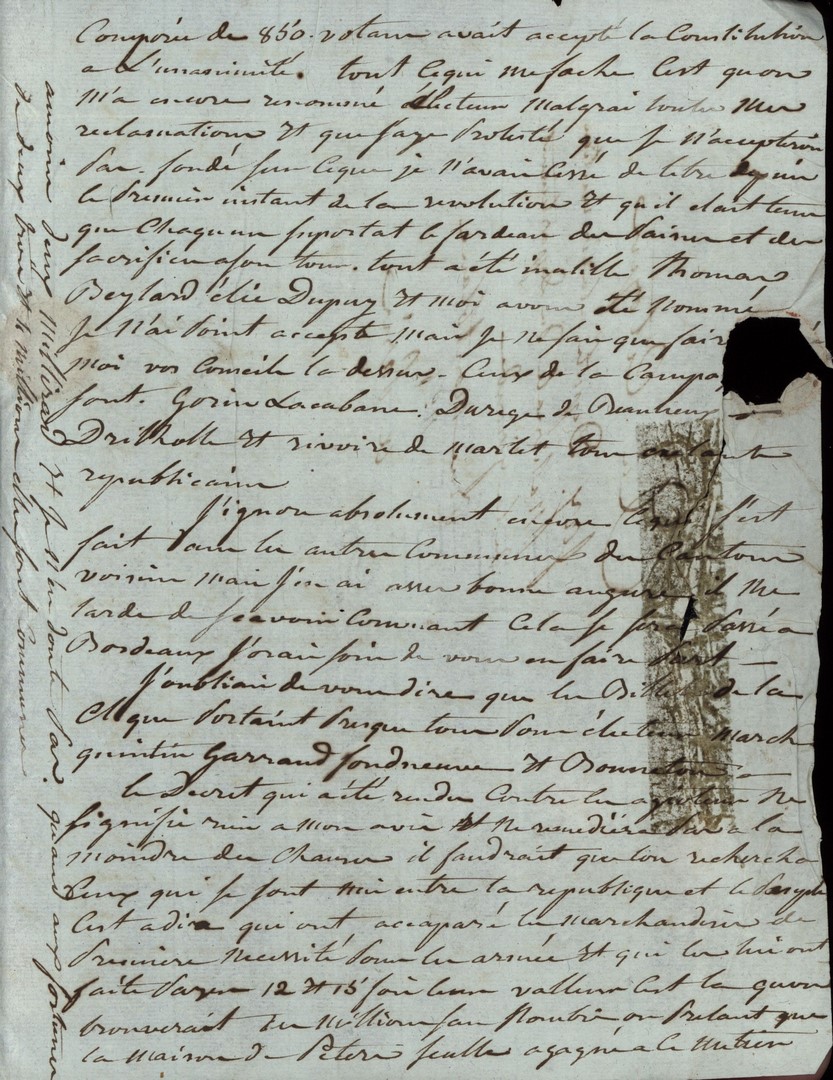 Composée de 850. votans avait accepté la Constitution
a L'unanimité. tout cequi me fache C'est quon
m'a encore renommé électeur malgrai toutes mes
reclamations et que j'aye Protesté que je n'accepterois
Pas. fondé sur ceque je n'avais cessé de letre depuis
le Premier instant de la revolution et quil etait tems
que Chaqu'un suportat le fardeau des Peines et des
sacrifices a son tour. tout a été inutille Thomas
Beylard élie Dupuy et moi avons été nommé
je n'ai Point accepté mais je ne sais que faire
moi vos Conseils la dessus. Ceux de la Campa
sont. Gorin Lacabane. Durege de Beaulieu
Drilholle et rivoire de martet tous
republicains
J'ignore absolument encore cequi s'est
fait dans les autres Communes des Cantons
voisins mais j'en ai assez bonne augure, il me
tarde de scavoir Comment Cela se sera Passé a
Bordeaux J'orais soin de vous en faire Part —
J'oubliais de vous dire que les Billets de la
Clique Portaint Presque tous Pour électeurs march
quintin Garraud fondneuve et Bonneton —
le Decret qui a été rendu Contre les agioteurs ne
signifie rien a mon avis et ne remediéra Pas a la
moindre des Choses il faudrait que lon recherchа
Ceux qui se sont mis entre la republique et le Peuple
C'est a dire qui ont accaparé les marchandises de
Premiere necessité Pour les armées et qui les lui ont
faite Payer 12 et 15 fois leur valleur C'est la quon
trouverait des millions sans Nombre on Pretant que
la maison de seulle a gagné a le
amoins deux et je n'en doute Pas. quand aux fortunes
de deux trois et 4 millions elles sont Communes